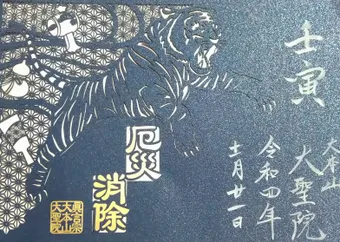 壬寅
大本山
大聖院
令和四年
十一月廿一日
厄災
消除
真言宗
大本山
大聖院